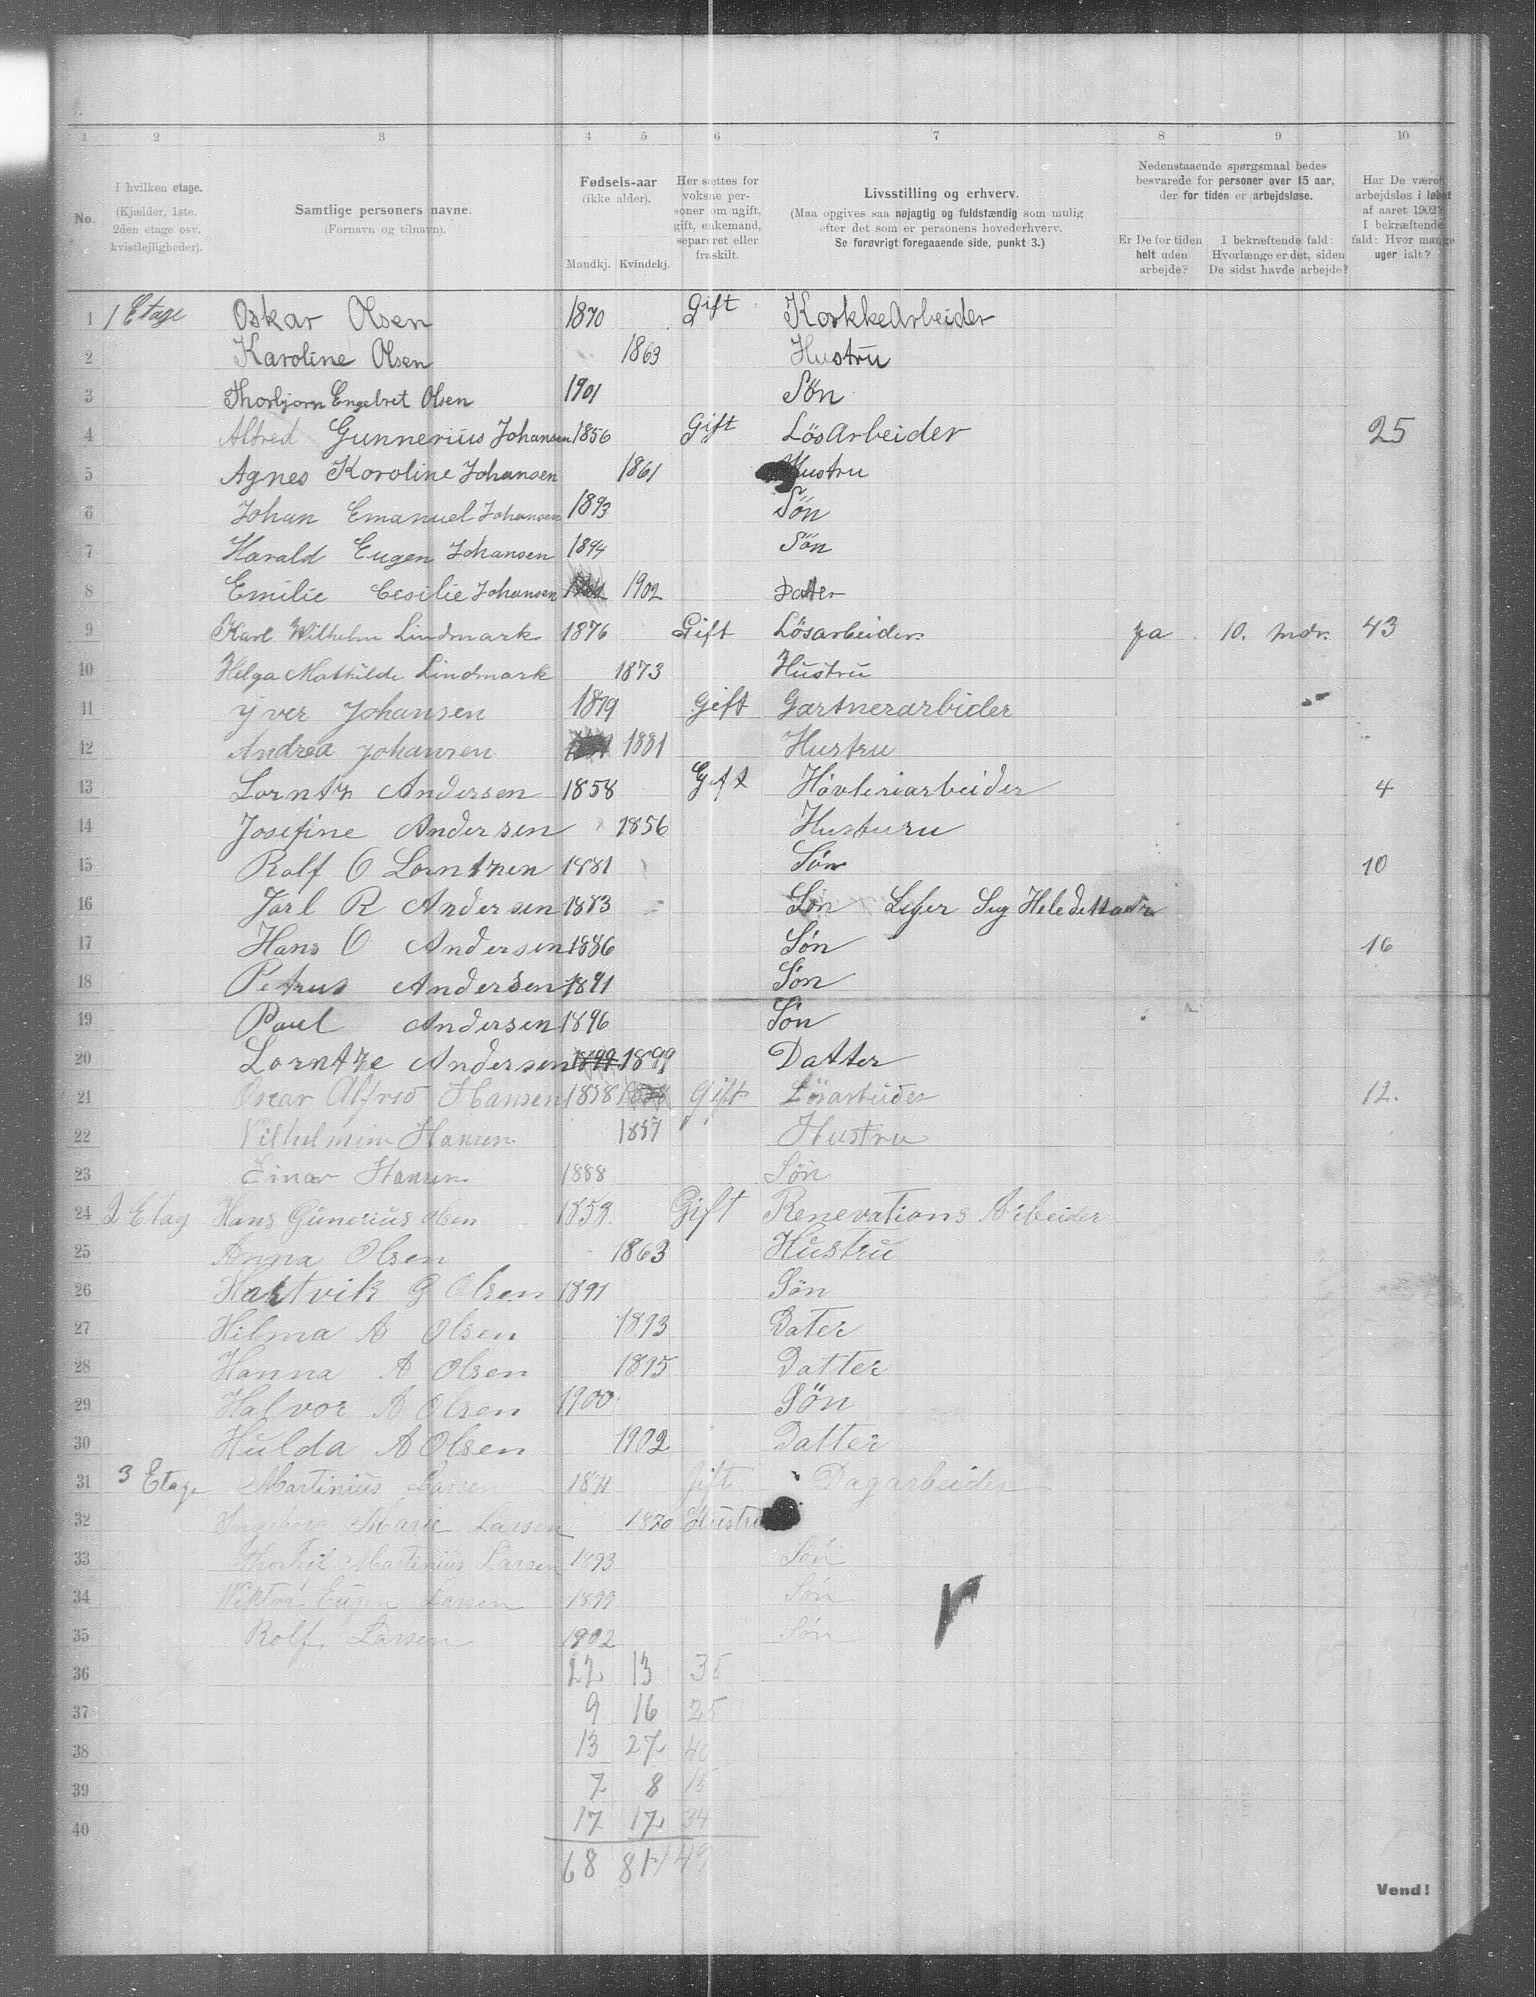 1 2 3 4 5 6 7 8 9 10
No.
I hvilken etage.
(Kjælder, 1ste.
2den etage osv.
kvistlejligheder).
Samtlige personers navne.
(Fornavn og tilnavn).
Fødsels-aar
(ikke alder).
Mandkj. Kvindekj.
Her sættes for
voksne per-
soner om ugift,
gift, enkemand,
separeret eller
fraskilt.
Livsstilling og erhverv.
(Maa opgives saa nøjagtig og fuldstændig som mulig
efter det som er personens hovederhverv.
Se forøvrigt foregaaende side, punkt 3.)
Nedenstaaende spørgsmaal bedes
besvarede for personer over 15 aar,
der for tiden er arbejdsløse.
Er De for tiden
helt uden
arbejde?
I bekræftende fald:
Hvorlænge er det, siden
De sidst havde arbejde?
Har De været
arbejdsløs i løbet
af aaret 1902?
I bekræftende
fald: Hvor mange
uger ialt?
1 1 Etage Oskar Olsen 1870 Gift KorkkeArbeider
2 Karoline Olsen 1863 Hustru
3 Thorbjorn Engebret Olsen 1901 Søn
4 Alfred Gunnerius Johansen 1856 Gift LösArbeider 25
5 Agnes Karoline Johansen 1861 Hustru
6 Johan Emanuel Johansen 1893 Sön
7 Harald Eugen Johansen 1894 Sön
8 Emilie Cesilie Johansen 1902 Datter
9 Karl Wilhelm Lindmark 1876 Gift Lösarbeider ja 10. mdr. 43
10 Helga Mathilde Lindmark 1873 Hustru
11 Yver Johansen 1879 Gift Gartnerarbider
12 Andrea Johansen 1881 Hustru
13 Lorntz Andersen 1858 Gift Høvleriarbeider 4
14 Josefine Andersen 1856 Husturu
15 Rolf O Lorntzen 1881 Søn 10
16 Jarl R Andersen 1883 Søn
17 Hans O Andersen 1886 Søn 16
18 Petrus Andersen 1891 Søn
19 Paul Andersen 1896 Søn
20 Lorntze Andersen 1899 1899 Datter
21 Oscar Alfred Hansen 1858 Gift Lösarbeider 12.
22 Vilhelmine Hansen 1857 Hustru
23 Einar Hansen 1888 Søn
24 2 Etag Hans Gunerius Olsen 1859 Gift Renevations Arbeider
25 Anna Olsen 1863 Hustru
26 Hartvik G Olsen 1891 Sön
27 Hilma A Olsen 1893 Dater
28 Hanna A Olsen 1895 Datter
29 Halvor A Olsen 1900 Sön
30 Hulda A Olsen 1902 Datter
31 3 Etage Martinius Larsen 1871 Gift Dagarbeider
32 Ingeborg Marie Larsen 1870 Hustru
33 Martinius Larsen 1893 Søn
34 Wiktor Eugen Larsen 1899 Søn
35 Rolf Larsen 1902 Søn
36 22 13 35
37 9 16 25
38 13 27 40
39 7 8 15
40 17 17 34
68 81 149
Vend!